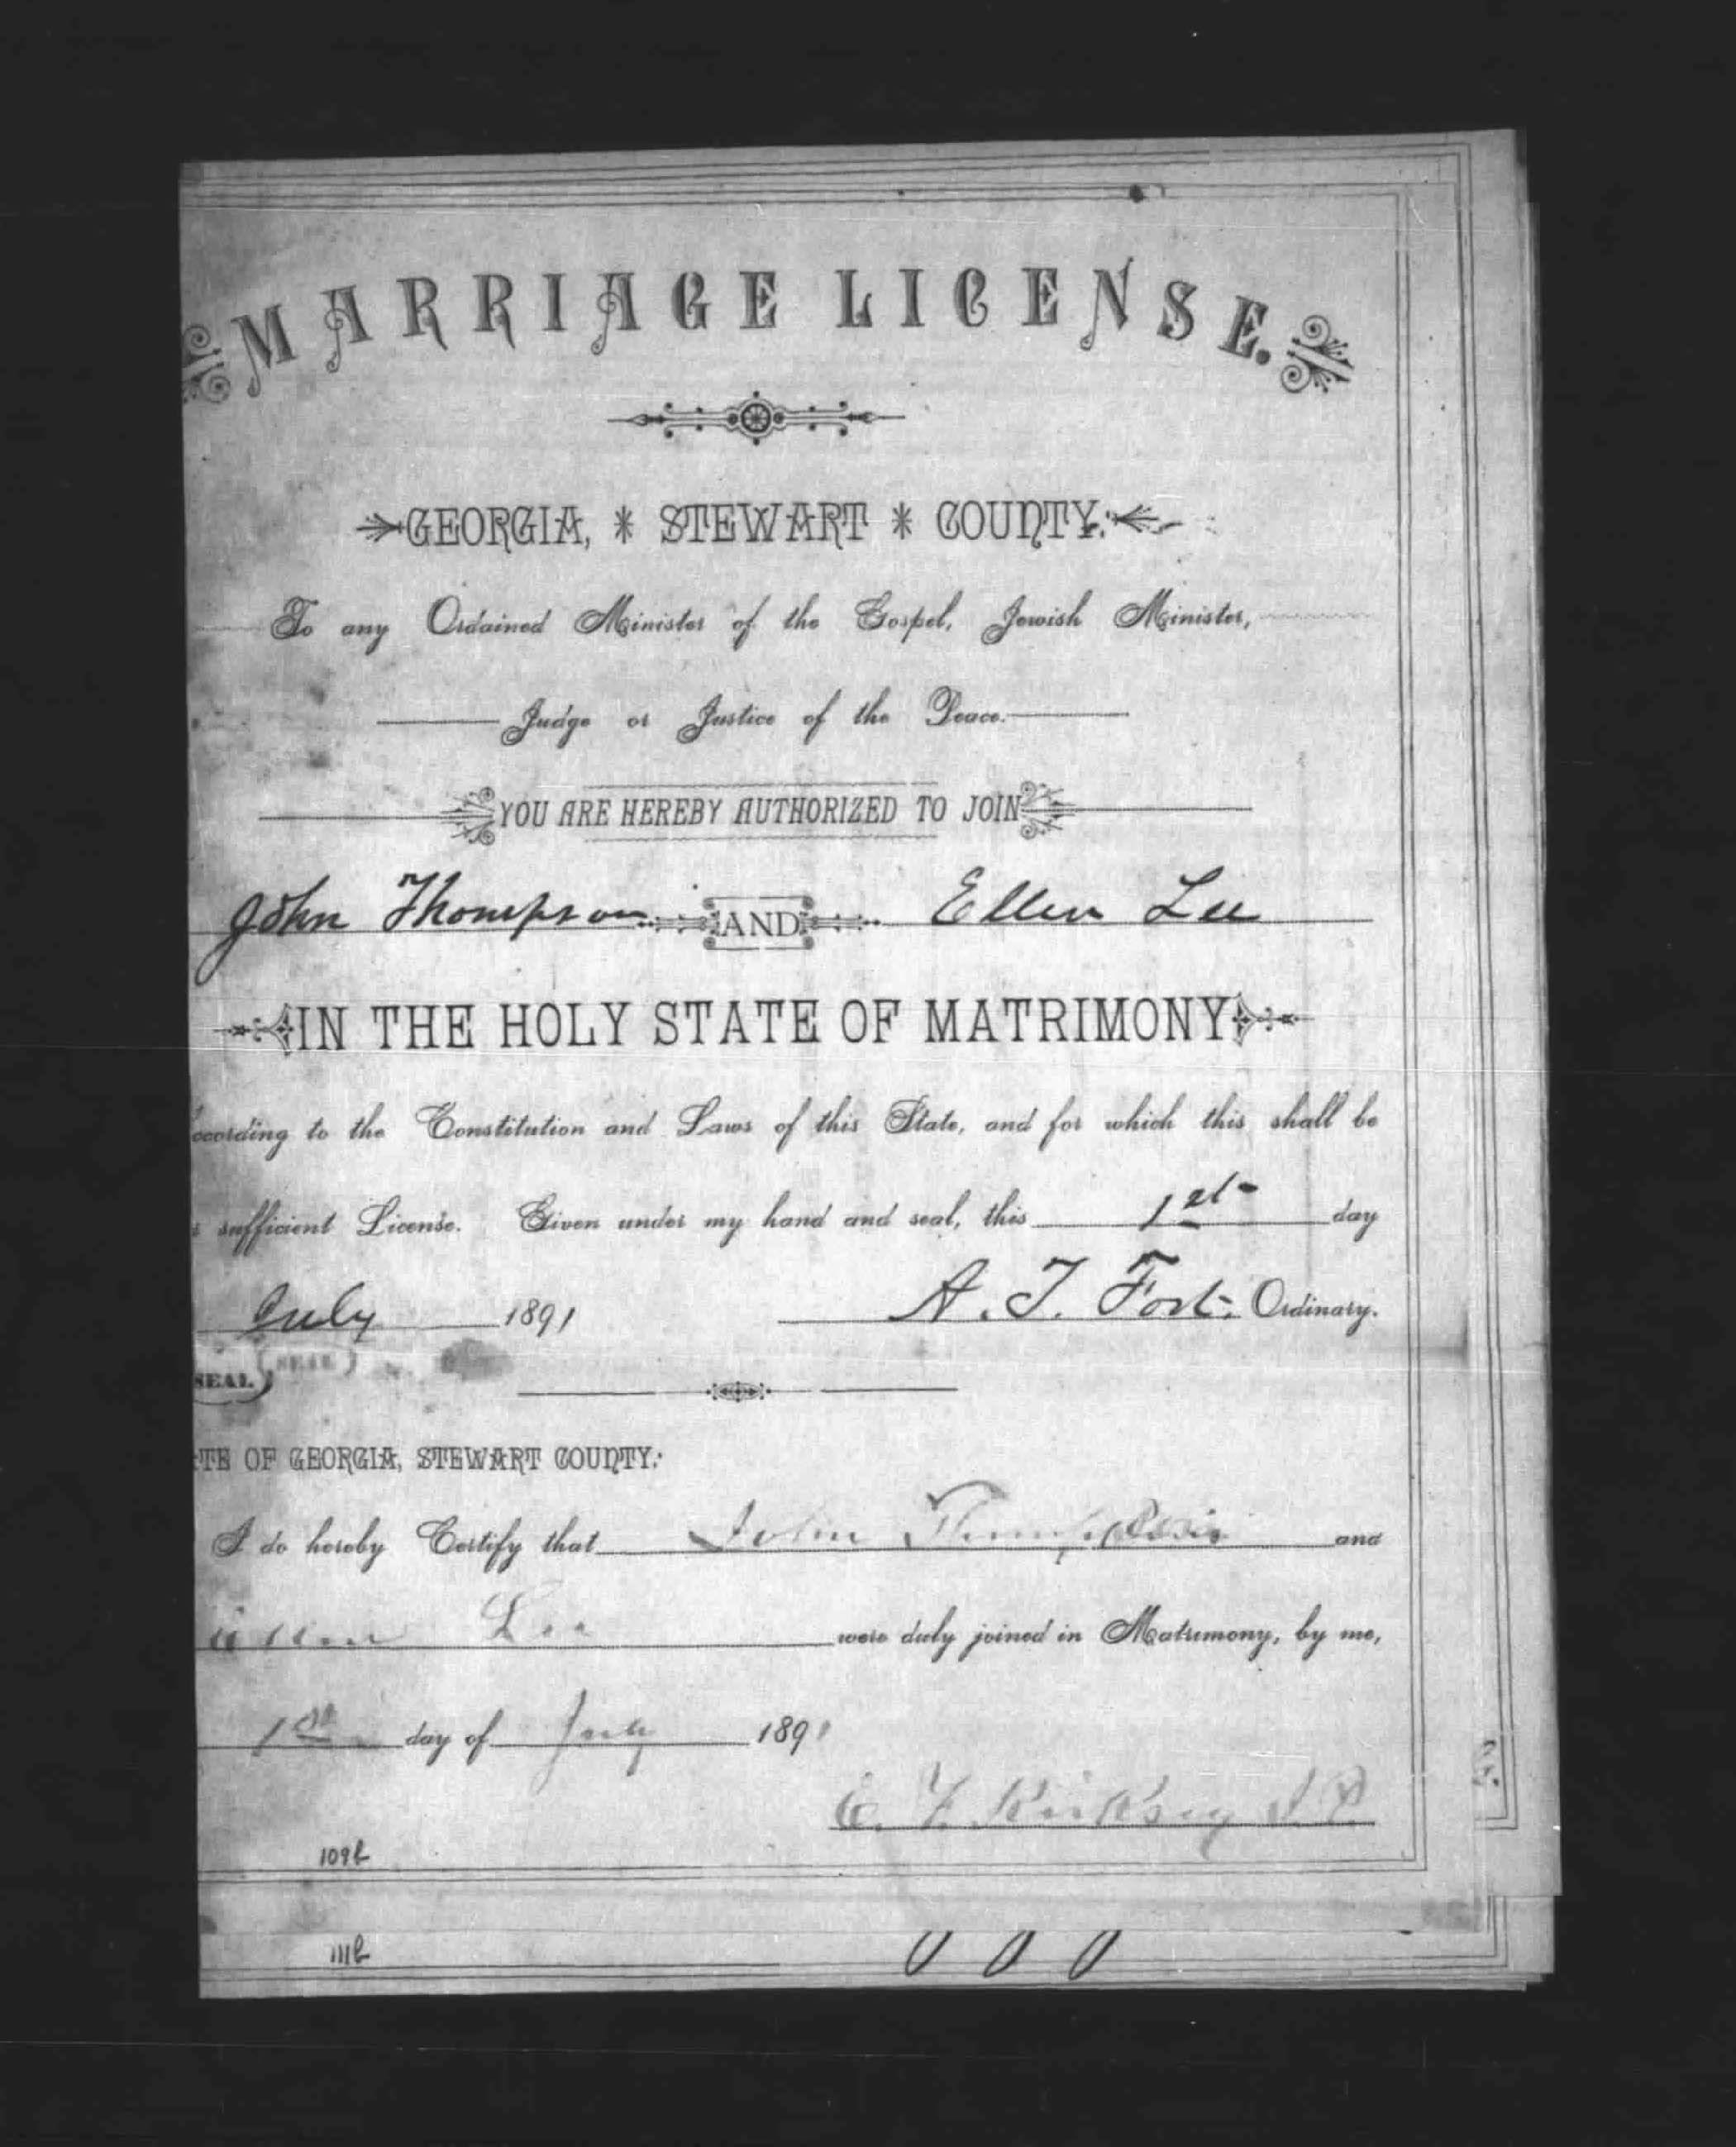 MARRIAGE LICENSE.
GEORGIA, * STEWART * COUNTY:
To any Ordained Minister of the Gospel, Jewish Minister,
Judge or Justice of the Peace.
YOU ARE HEREBY AUTHORIZED TO JOIN
John Thompson AND Ellen Lee
IN THE HOLY STATE OF MATRIMONY
ccording to the Constitution and Laws of this State, and for which this shall be
sufficient License. Given under my hand and seal, this 1st day
July 1891 A. T. Fort, Ordinary.
SEAL
SEAL
TE OF GEORGIA, STEWART COUNTY:
I do hereby Certify that John Thompson and
Ellen Lee were duly joined in Matrimony, by me,
1st day of July 1891
C. F. Kirksey J. P.
109b
111b